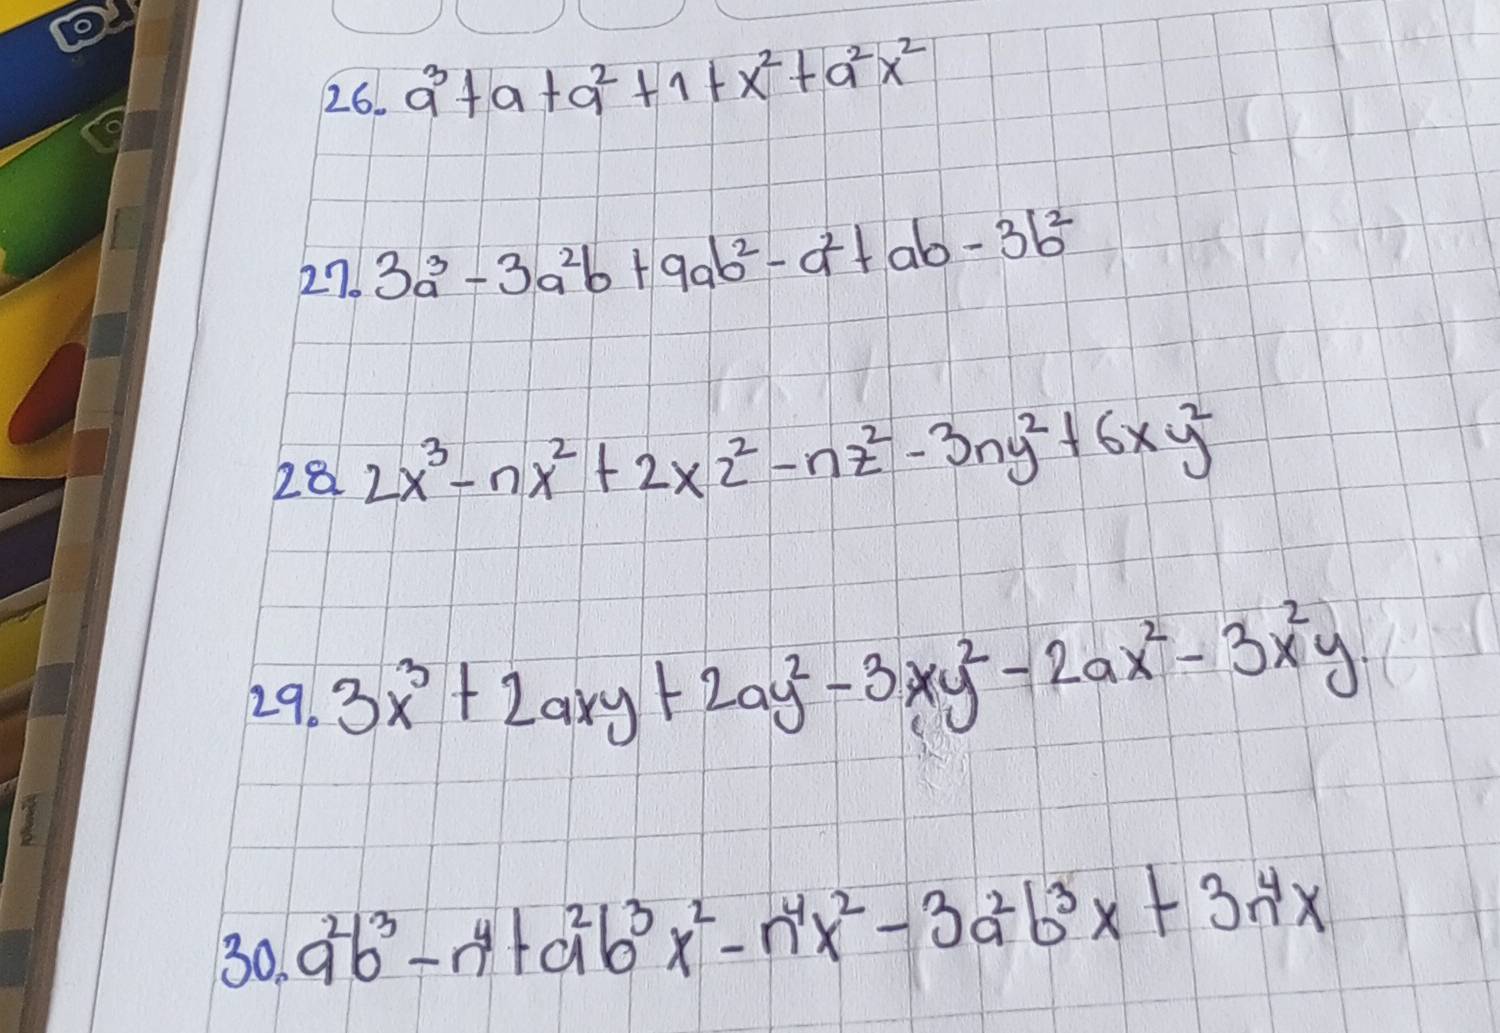 26. a³+a+a²+1+x²+a²x²
27. 3a³-3a²b+9ab²-a²+ab-3b²
28 2x³-nx²+2xz²-nz²-3ny²+6xy²
29. 3x³+2axy+2ay²-3xy²-2ax²-3x²y.
30. a²b³-n⁴+a²b³x²-n⁴x²-3a²b³x+3n⁴x